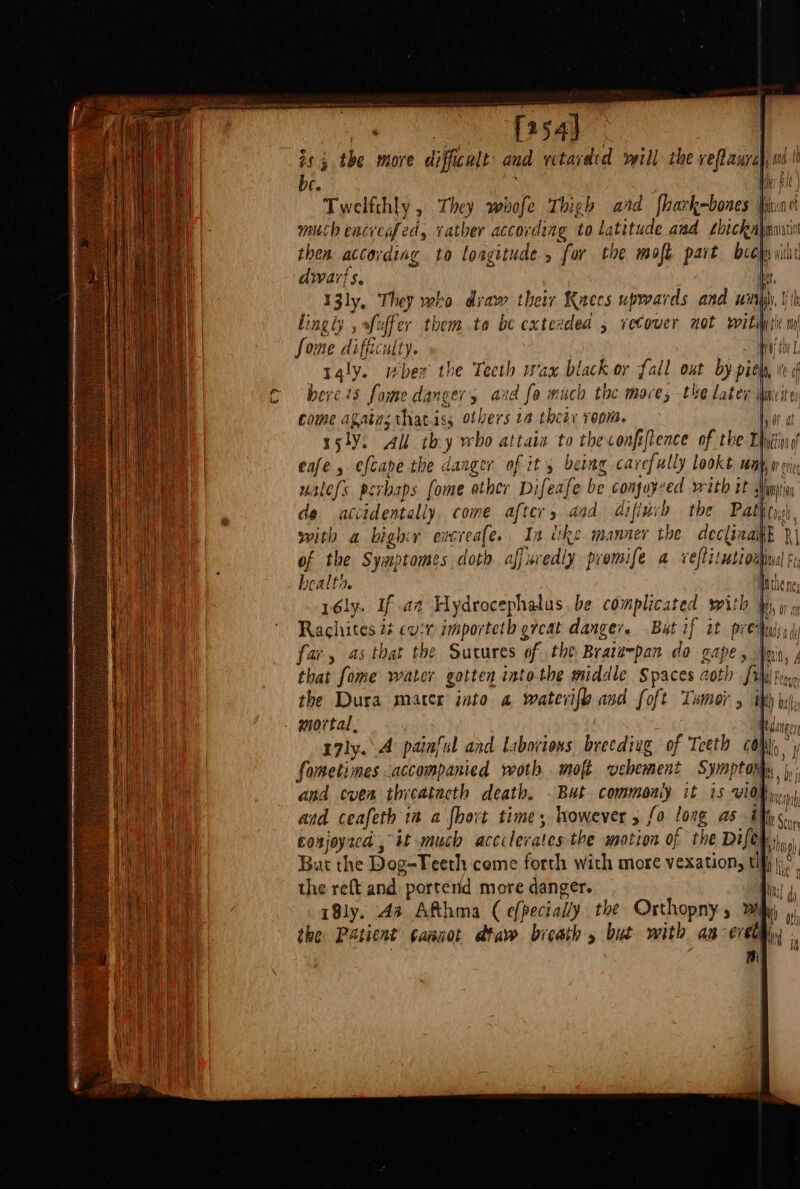 [254]
is; the more difficult and retarded will the restaura
be.
Twelfthly, They whose Thigh and shank-bones
much encreased, rather according to latitude and thickn
then according to longitude, for the most part bec
dwarfs.
13ly. They who draw their Knees upwards and un
lingly suffer them to be extended, recover not with
some difficulty.
14ly. When the Teeth wax black or fall out by pie
here is some danger, and so much the more, the later
come again; that is, others in their room.
15ly. All they who attain to the consistence of the D
ease, escape the danger of it; being carefully lookt un
unless perhaps some other Disease be conjoyned with it
do accidentally come after, and disturb the Pat
with a higher encrease. In like manner the declina
of the Symptomes doth assuredly promise a restitution
health.
16ly. If an Hydrocephalus be complicated with
Rachites it ever importeth great danger. But if it pre
far, as that the Sutures of the Brain-pan do gape,
that some water gotten into the middle Spaces doth
the Dura mater into a waterish and soft Tumor,
mortal.
17ly. A painful and laborious breeding of Teeth
sometimes accompanied woth most vehement Sympto
and even threatneth death. But commonly it is vio
and ceaseth in a short time; however, so long as
conjoyned, it much accelerates the motion of the Dise
But the Dog-Teeth come forth with more vexation,
the rest and portend more danger.
18ly. An Asthma (especially the Orthopny,
the Patient cannot draw breath, but with an ere